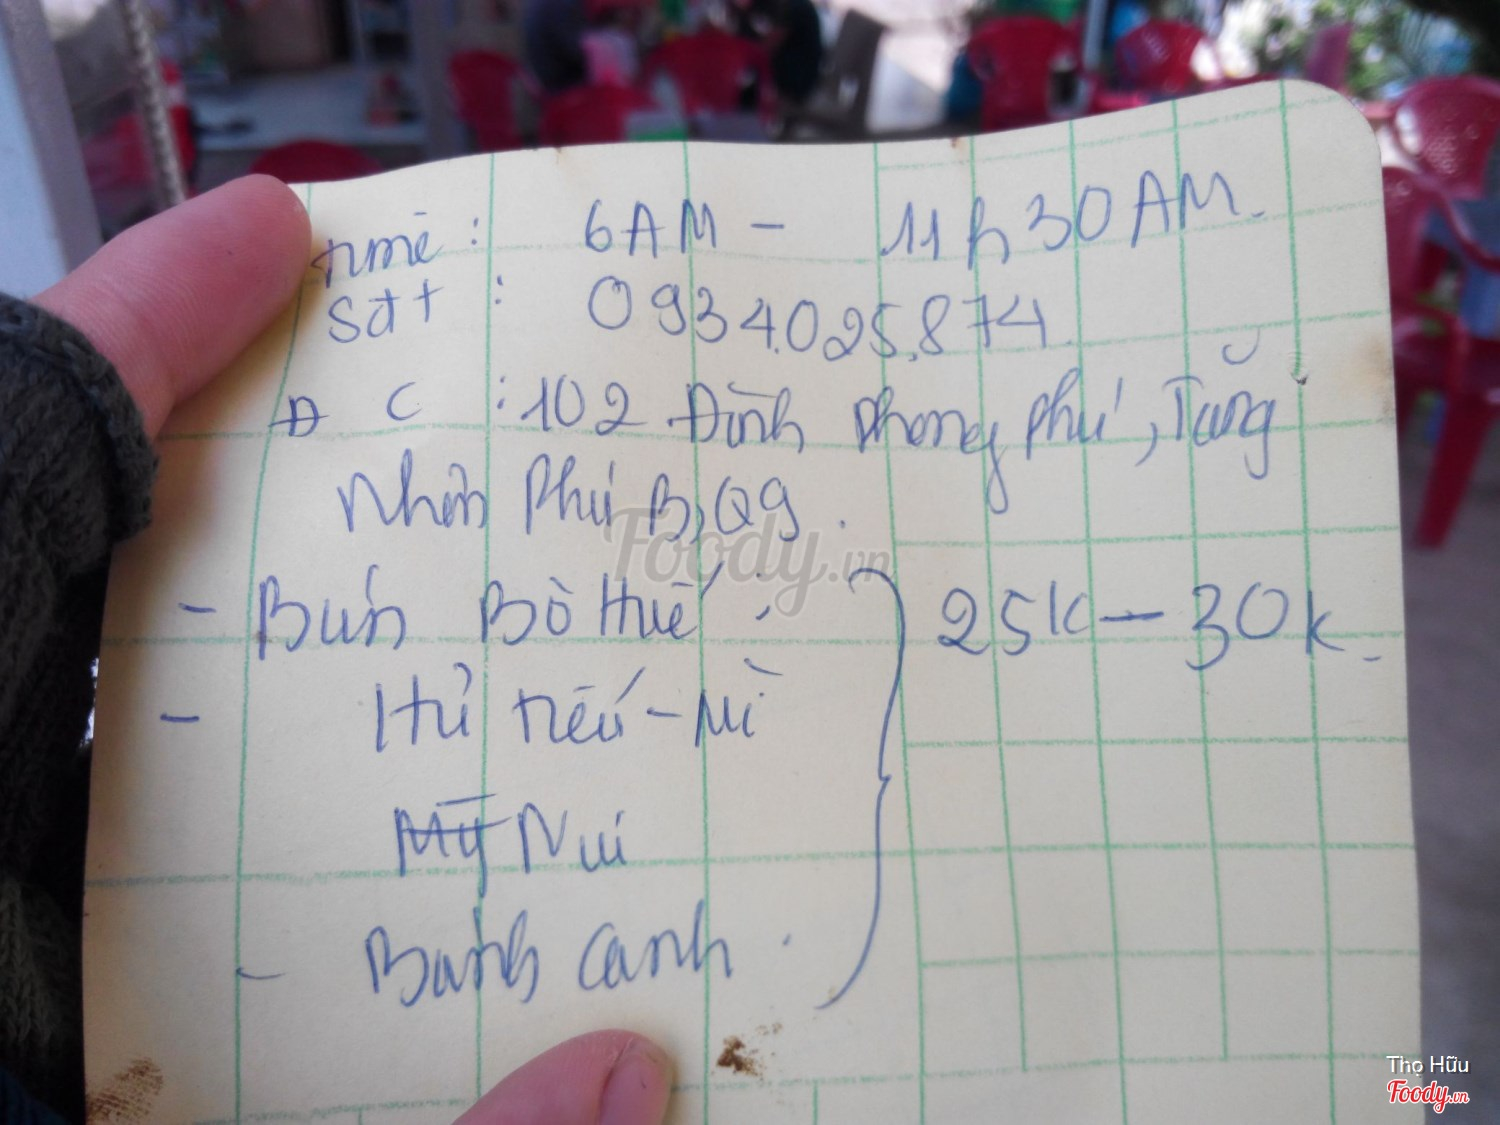 time : 6AM - 11h30AM.
Sđt : 0934.025.874.
Đ C : 102 Đình Phong Phú, Tăng
Nhơn Phú B, Q9.
- Bún Bò Huế :
- Hủ tiếu - Mì
Mỹ Nui
- Bánh canh.
25k - 30k.
Foody.vn
Thọ Hữu
Foody.vn